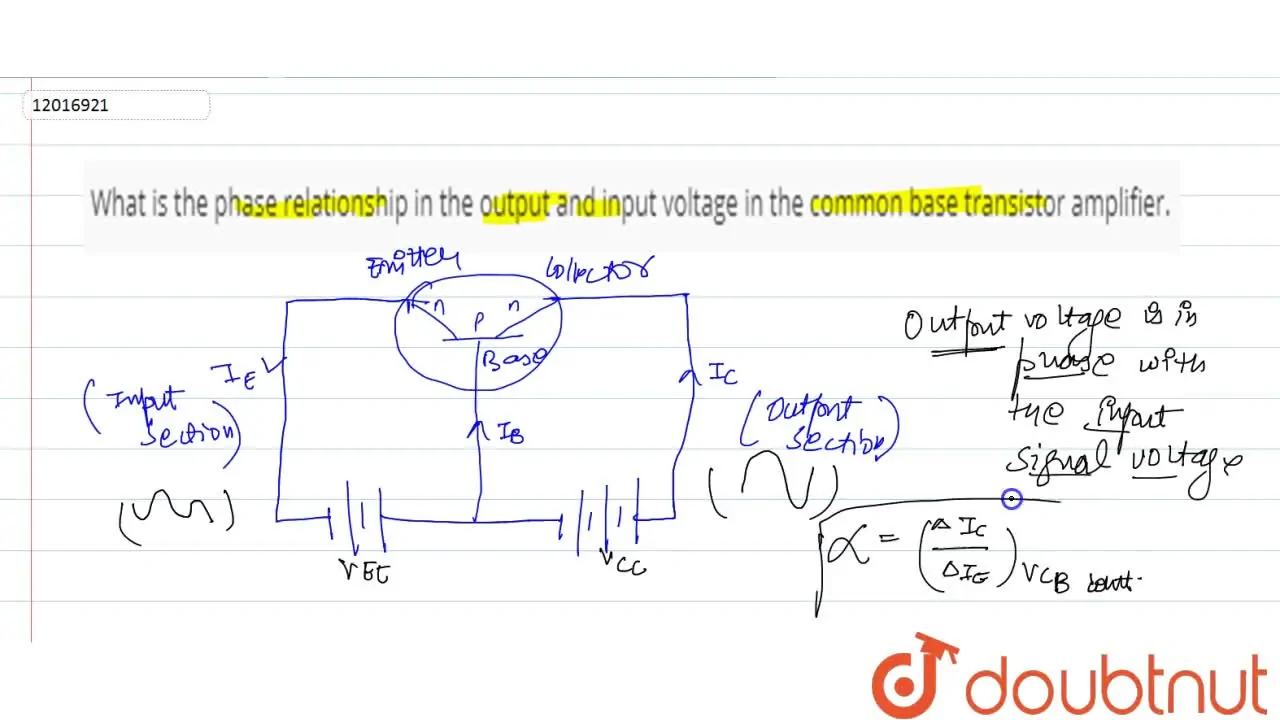 12016921
What is the phase relationship in the output and input voltage in the common base transistor amplifier.
Emitter
Collector
n
n
P
Base
IE
IC
(Input
section)
IB
(Output
section)
VEE
VCC
Output voltage is in
phase with
the input
signal voltage
α = (ΔIC/ΔIE) VCB
doubtnut